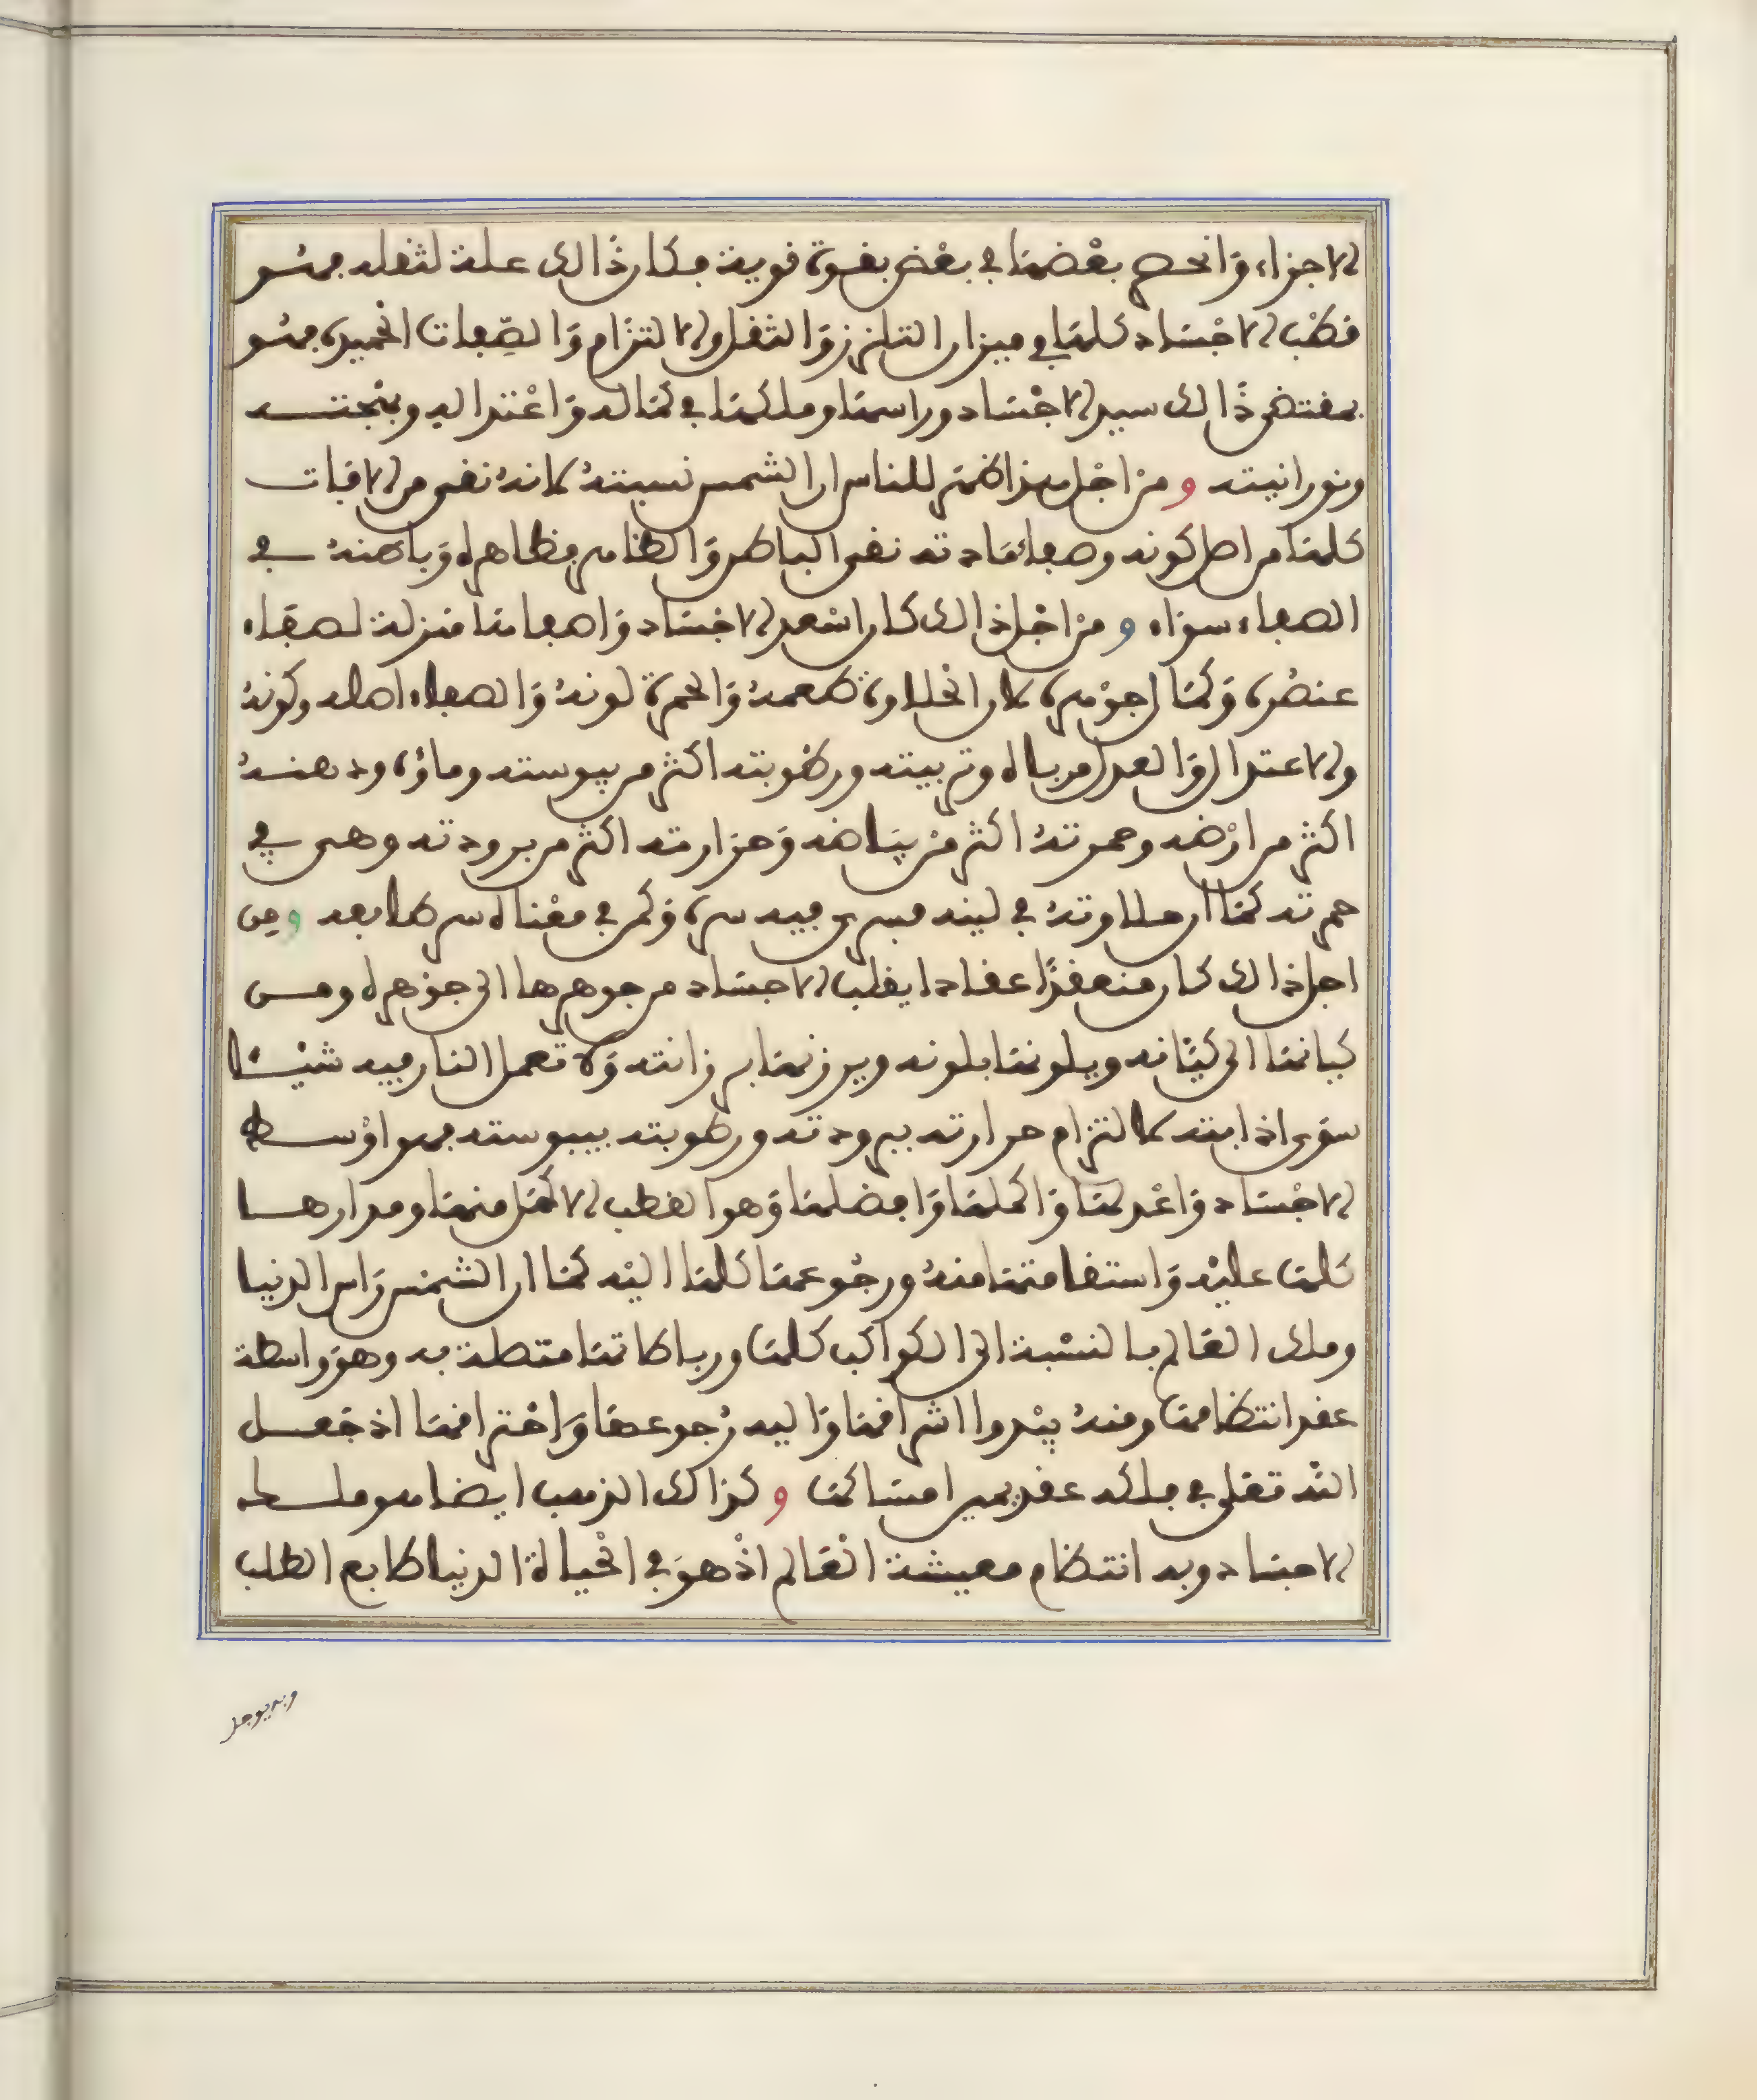 الاجزاء وانحصر بعضها في بعض بقوة قوية فكان ذالك علة لثقله فهو
قطب الاجساد كلها في ميزان التلزز والثقل والالتزام والصفات الحميدة فهو
بمقتضى ذالك سيد الاجساد وراسها وملكها في كماله واعتداله وبهجته
ونورانيته ومن اجل هذا ظهر للناس ان الشمس نسبته لانه نقي من الافات
كلها من اصل كونه وصفاء مادته نقي الباطن والظاهر فظاهره وباطنه في
الصفاء سواء ومن اجل ذالك كان اسعد الاجساد واصفاها منزلة لصفاء
عنصره وكمال جوهره لان الحلاوة طعمه والحمرة لونه والصفاء اصله وكونه
والاعتدال والعدل مرباه وتربيته ورطوبته اكثر من يبوسته وماؤه ودهنه
اكثر من ارضه وحمرته اكثر من بياضه وحرارته اكثر من برودته وهي في
حمرته كما ان حلاوته في لينه فسرى فيه سره وكمن في معناه سر طابعه ومن
اجل ذالك كان منعقدا عقادا يقلب الاجساد من جوهرها الى جوهره ومن
كيانها الى كيانه ويلونها بلونه ويرزنها برزانته ولا تعمل النار فيه شيئا
سوى اذابته لالتزام حرارته ببرودته ورطوبته بيبوسته فهو اوسط
الاجساد واعدلها واكملها وافضلها وهو القطب الاكمل منها ومدارها
كلها عليه واستقامتها منه ورجوعها كلها اليه كما ان الشمس راس الدنيا
وملك العالم بالنسبة الى الكواكب كلها ورباطاتها متصلة به وهو واسطة
عقد انتظامها ومنه يبدوا اشراقها واليه رجوعها واحتراقها اذ جعل
الله تعلى في فلكه عقد تميز امساكها وكذالك الذهب ايضا هو ملك
الاجساد وبه انتظام معيشة العالم اذ هو في الحياة الدنيا طابع الطلب
وبه يوجد